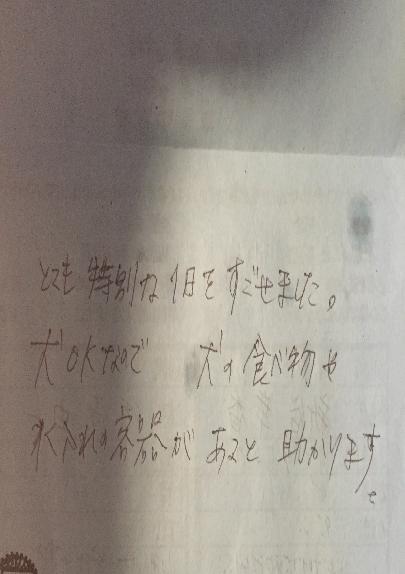 とても特別な1日をすごせました。
犬OKなので 犬の食べ物や
水入れの容器があると助かります。